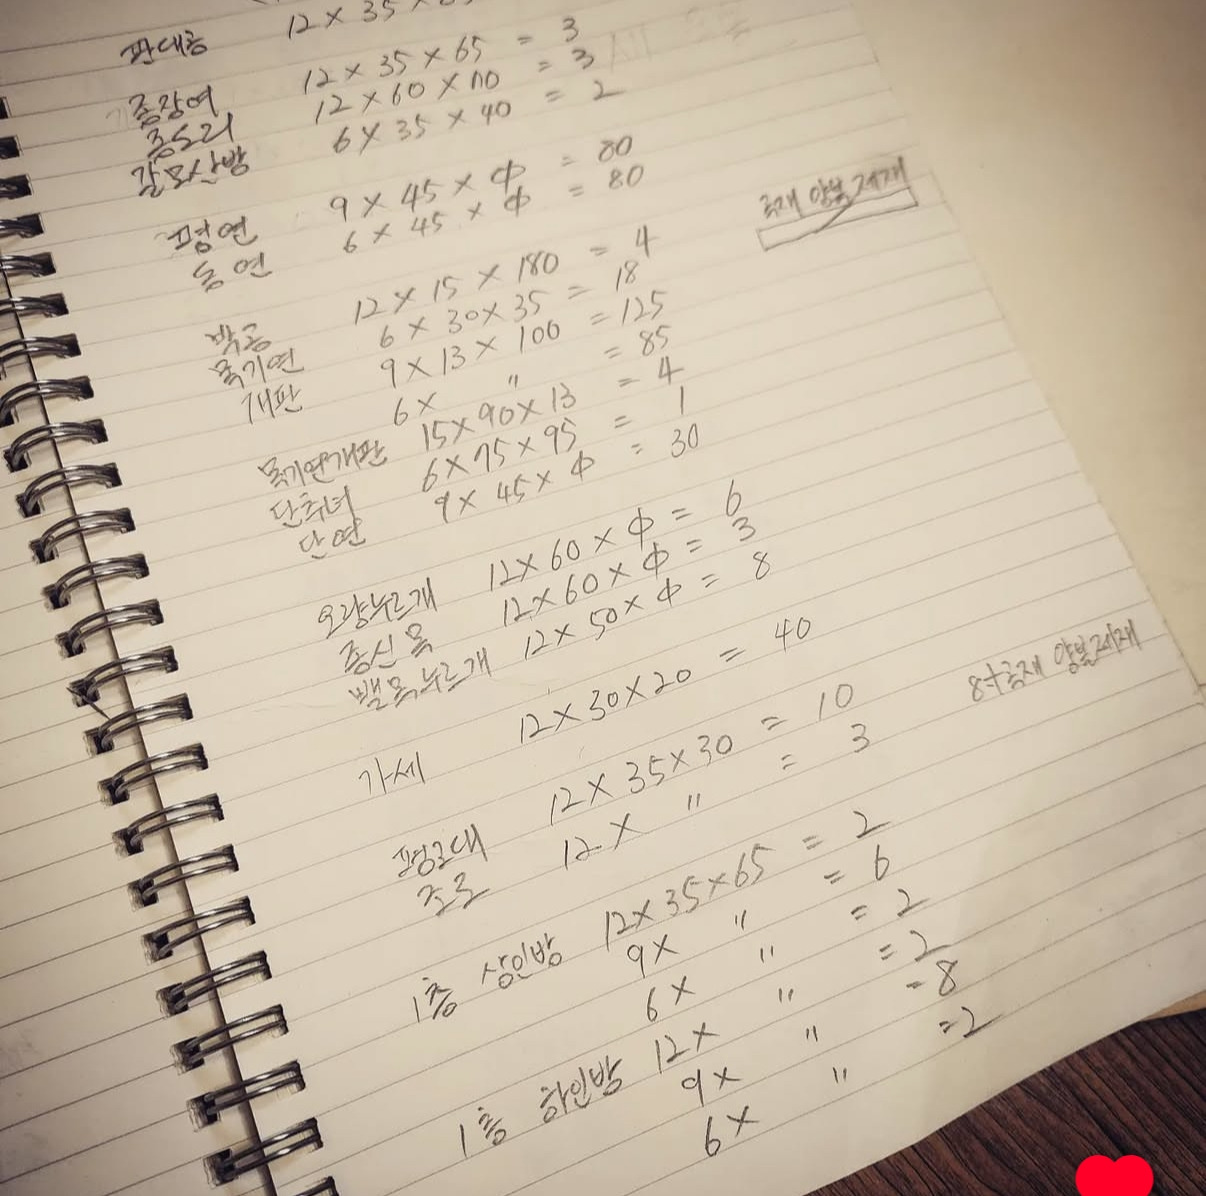 판대공 12 × 35 ×
종장여 12 × 35 × 65 = 3
종도리 12 × 60 × 110 = 3
갈모산방 6 × 35 × 40 = 2
평연 9 × 45 × Φ = 80
동연 6 × 45 × Φ = 80
박공 12 × 15 × 180 = 4
목기연 6 × 30 × 35 = 18
개판 9 × 13 × 100 = 125
6 × 〃 = 85
목기연개판 15 × 90 × 13 = 4
단추녀 6 × 75 × 95 = 1
단연 9 × 45 × Φ = 30
오량누르개 12 × 60 × Φ = 6
종심목 12 × 60 × Φ = 3
뺄목누르개 12 × 50 × Φ = 8
가세 12 × 30 × 20 = 40
평고대 12 × 35 × 30 = 10
조로 12 × 〃 = 3
1층 상인방 12 × 35 × 65 = 2
9 × 〃 = 6
6 × 〃 = 2
1층 하인방 12 × 〃 = 2
9 × 〃 = 8
6 × 〃 = 2
양볼제재
8寸 양볼제재